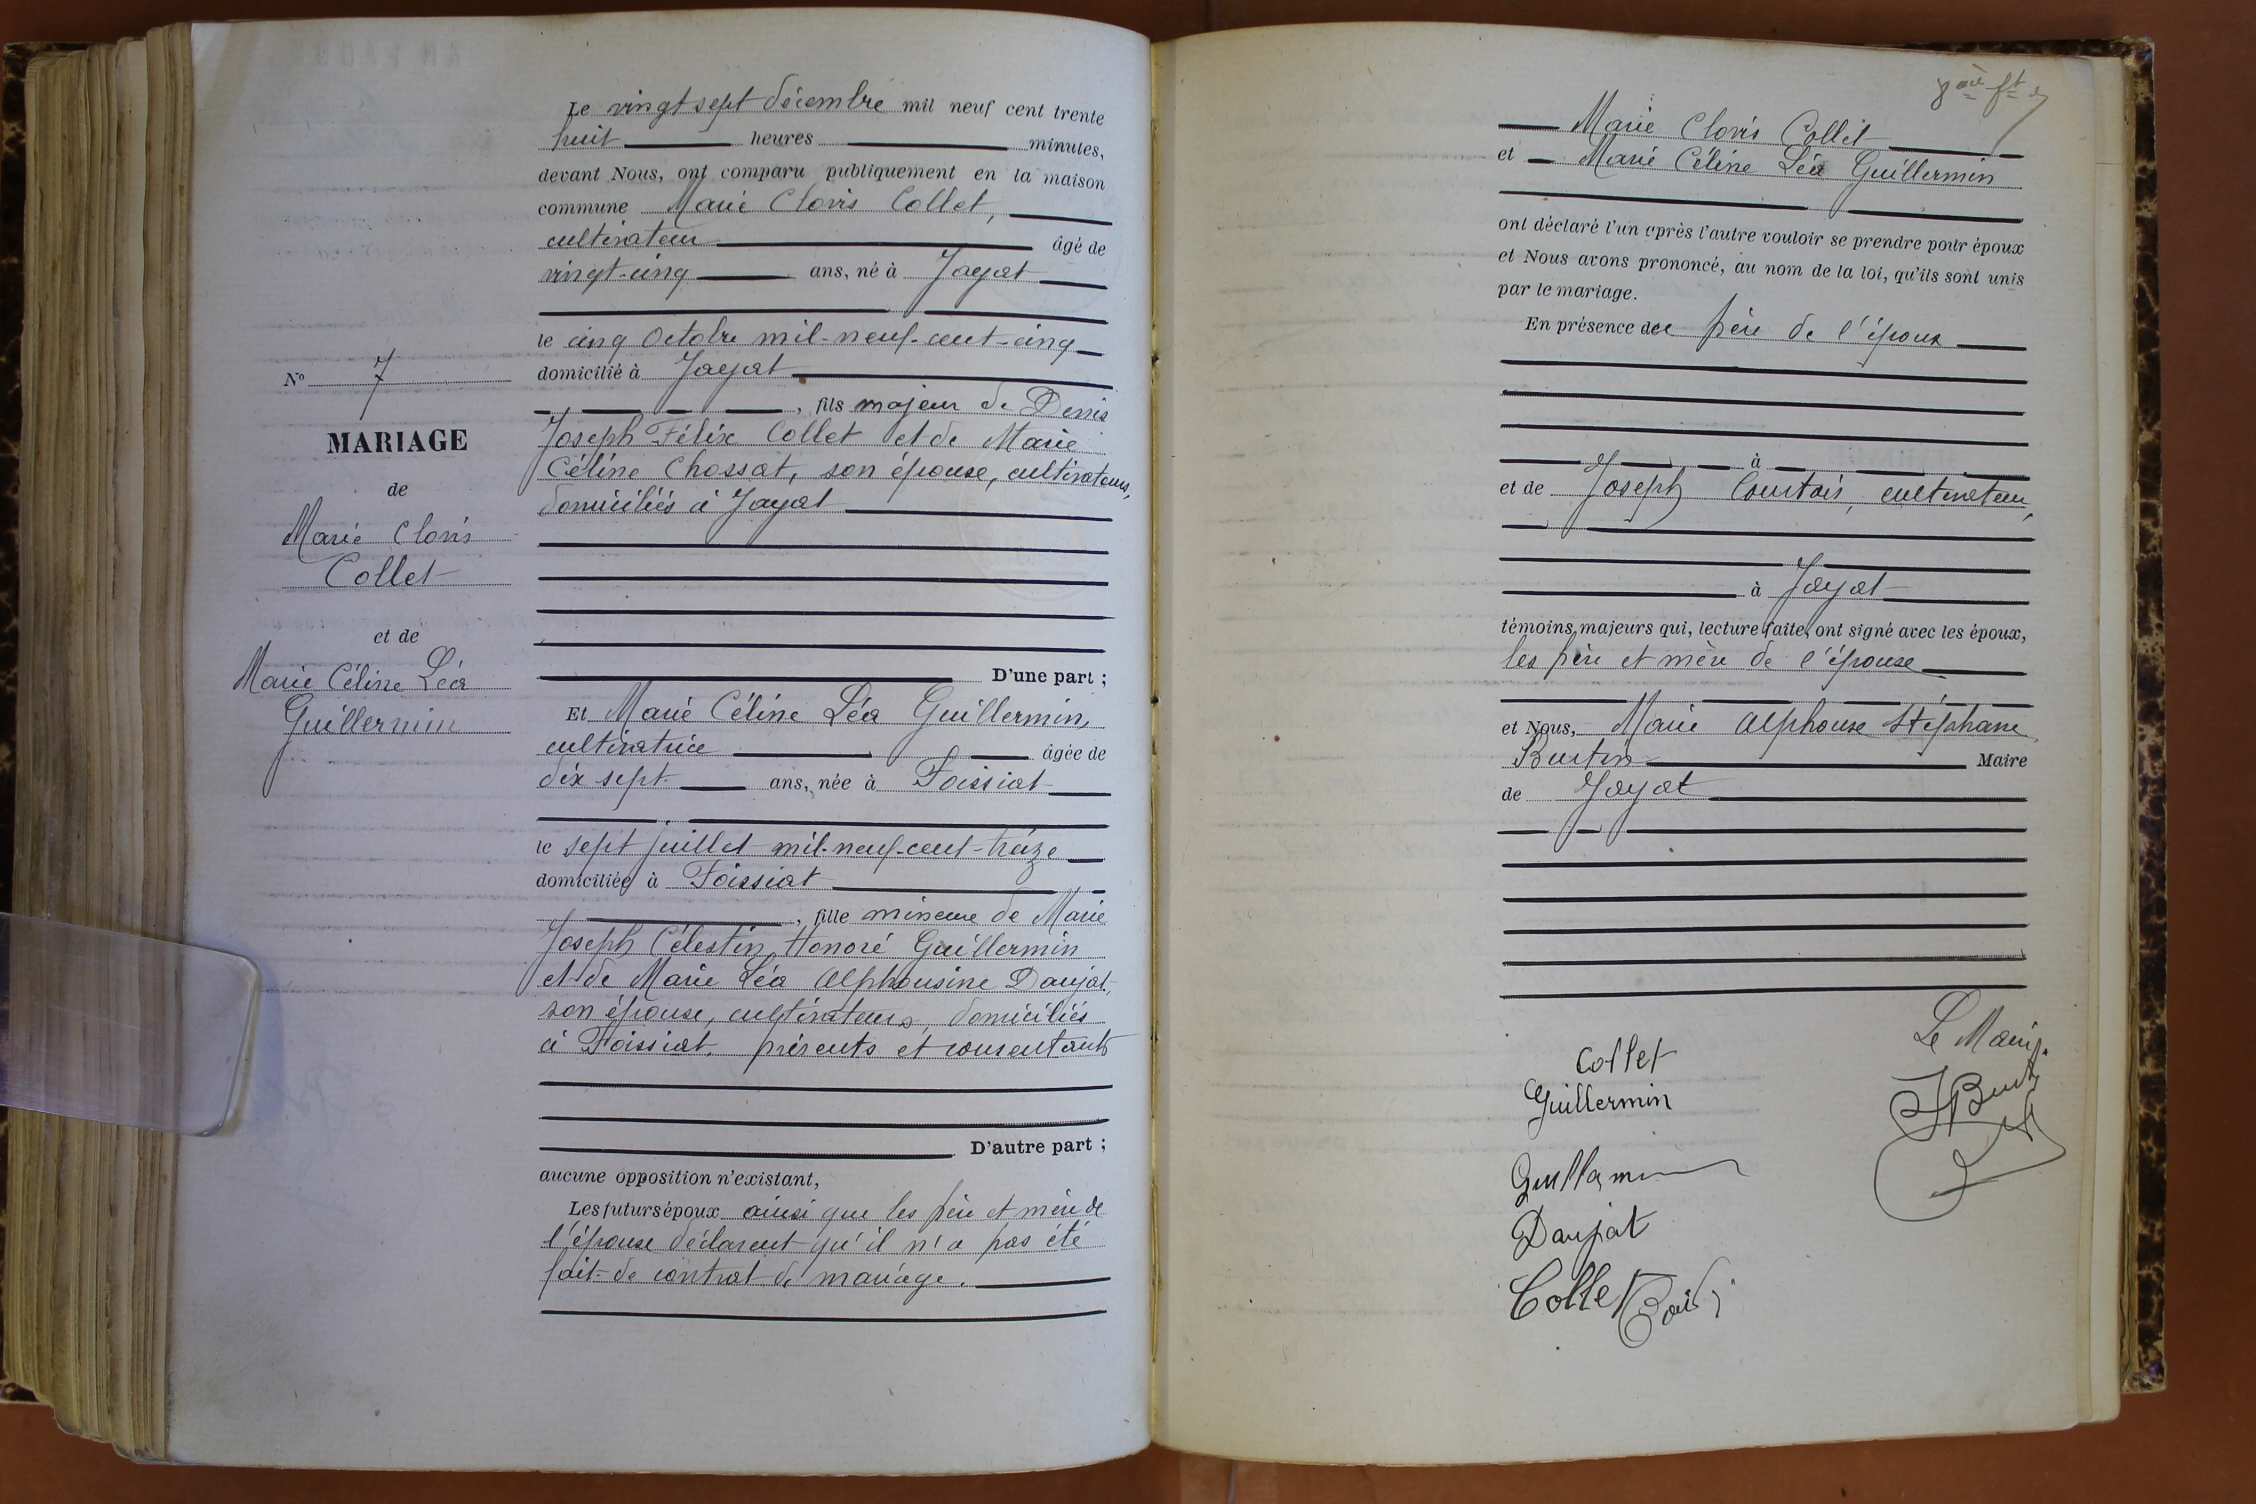 Le vingt sept décembre mil neuf cent trente
huit heures minutes,
devant Nous, ont comparu publiquement en la maison
commune Marie Clovis Collet,
cultivateur âgé de
vingt-cinq ans, né à Jayat
le cinq Octobre mil-neuf-cent-cinq
domicilié à Jayat
, fils majeur de Denis
Joseph Félix Collet et de Marie
Céline Chossat, son épouse, cultivateurs,
domiciliés à Jayat
D'une part ;
Et Marie Céline Léa Guillermin,
cultivatrice âgée de
dix sept ans, née à Foissiat
le sept juillet mil-neuf-cent-treize
domiciliée à Foissiat
, fille mineure de Marie
Joseph Célestin Honoré Guillermin
et de Marie Léa Alphonsine Daujat,
son épouse, cultivateurs, domiciliés
à Foissiat, présents et consentants
D'autre part ;
aucune opposition n'existant,
Les futurs époux ainsi que les père et mère de
l'épouse déclarent qu'il n'a pas été
fait de contrat de mariage.
No 7
MARIAGE
de
Marie Clovis
Collet
et de
Marie Céline Léa
Guillermin
Marie Clovis Collet
et Marie Céline Léa Guillermin
ont déclaré l'un après l'autre vouloir se prendre pour époux
et Nous avons prononcé, au nom de la loi, qu'ils sont unis
par le mariage.
En présence de père de l'époux
à
et de Joseph Courtois, cultivateur,
à Jayat
témoins majeurs qui, lecture faite, ont signé avec les époux,
les père et mère de l'épouse
et Nous, Marie Alphonse Stéphane
Burtin Maire
de Jayat
Le Maire
Collet
Guillermin
Guillermin
Daujat
Collet